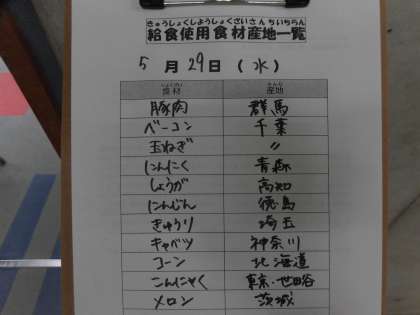 きゅうしょくしようしょくざいさんちいちらん
給食使用食材産地一覧
5月29日(水)
食材 産地
豚肉 群馬
ベーコン 千葉
玉ねぎ 〃
にんにく 青森
しょうが 高知
にんじん 徳島
きゅうり 埼玉
キャベツ 神奈川
コーン 北海道
こんにゃく 東京・世田谷
メロン 茨城